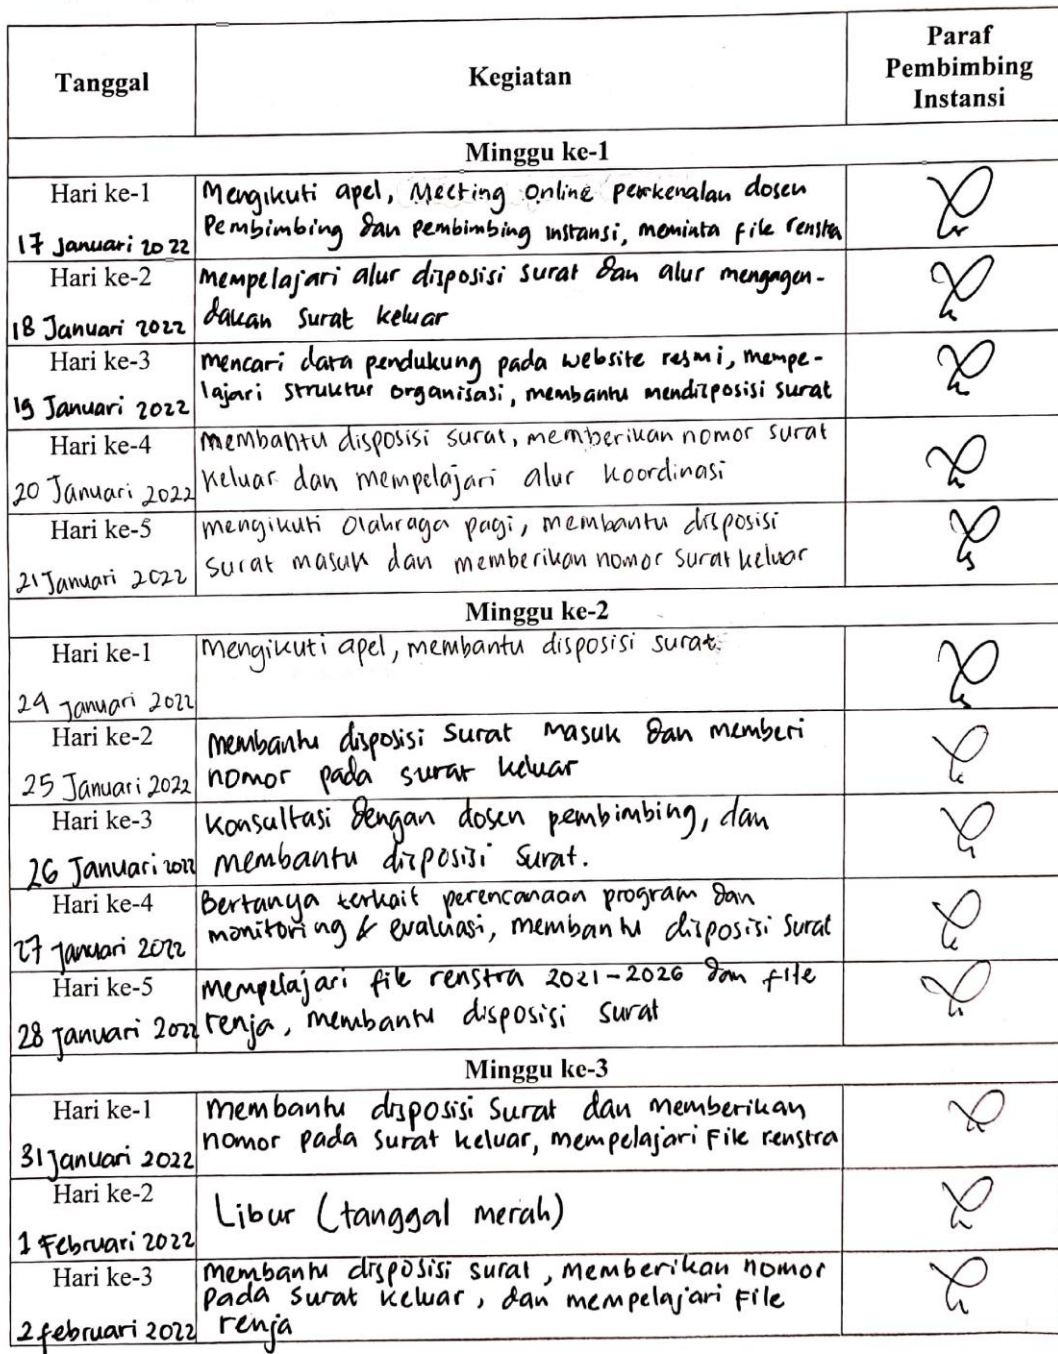 Tanggal
Kegiatan
Paraf
Pembimbing
Instansi
Minggu ke-1
Hari ke-1
17 Januari 2022
Mengikuti apel, Meeting Online perkenalan dosen
Pembimbing dan pembimbing instansi, meminta file renstra
Hari ke-2
18 Januari 2022
mempelajari alur disposisi surat dan alur mengagen-
dakan surat keluar
Hari ke-3
19 Januari 2022
mencari data pendukung pada website resmi, mempe-
lajari struktur organisasi, membantu mendisposisi surat
Hari ke-4
20 Januari 2022
membantu disposisi surat, memberikan nomor surat
keluar dan mempelajari alur koordinasi
Hari ke-5
21 Januari 2022
mengikuti olahraga pagi, membantu disposisi
surat masuk dan memberikan nomor surat keluar
Minggu ke-2
Hari ke-1
24 Januari 2022
Mengikuti apel, membantu disposisi surat.
Hari ke-2
25 Januari 2022
membantu disposisi surat masuk dan memberi
nomor pada surat keluar
Hari ke-3
26 Januari 2022
Konsultasi dengan dosen pembimbing, dan
membantu disposisi surat.
Hari ke-4
27 Januari 2022
Bertanya terkait perencanaan program dan
monitoring & evaluasi, membantu disposisi surat
Hari ke-5
28 Januari 2022
Mempelajari file renstra 2021-2026 dan file
renja, membantu disposisi surat
Minggu ke-3
Hari ke-1
31 Januari 2022
membantu disposisi surat dan memberikan
nomor pada surat keluar, mempelajari File renstra
Hari ke-2
1 Februari 2022
Libur (tanggal merah)
Hari ke-3
2 februari 2022
membantu disposisi surat, memberikan nomor
pada surat keluar, dan mempelajari File
renja